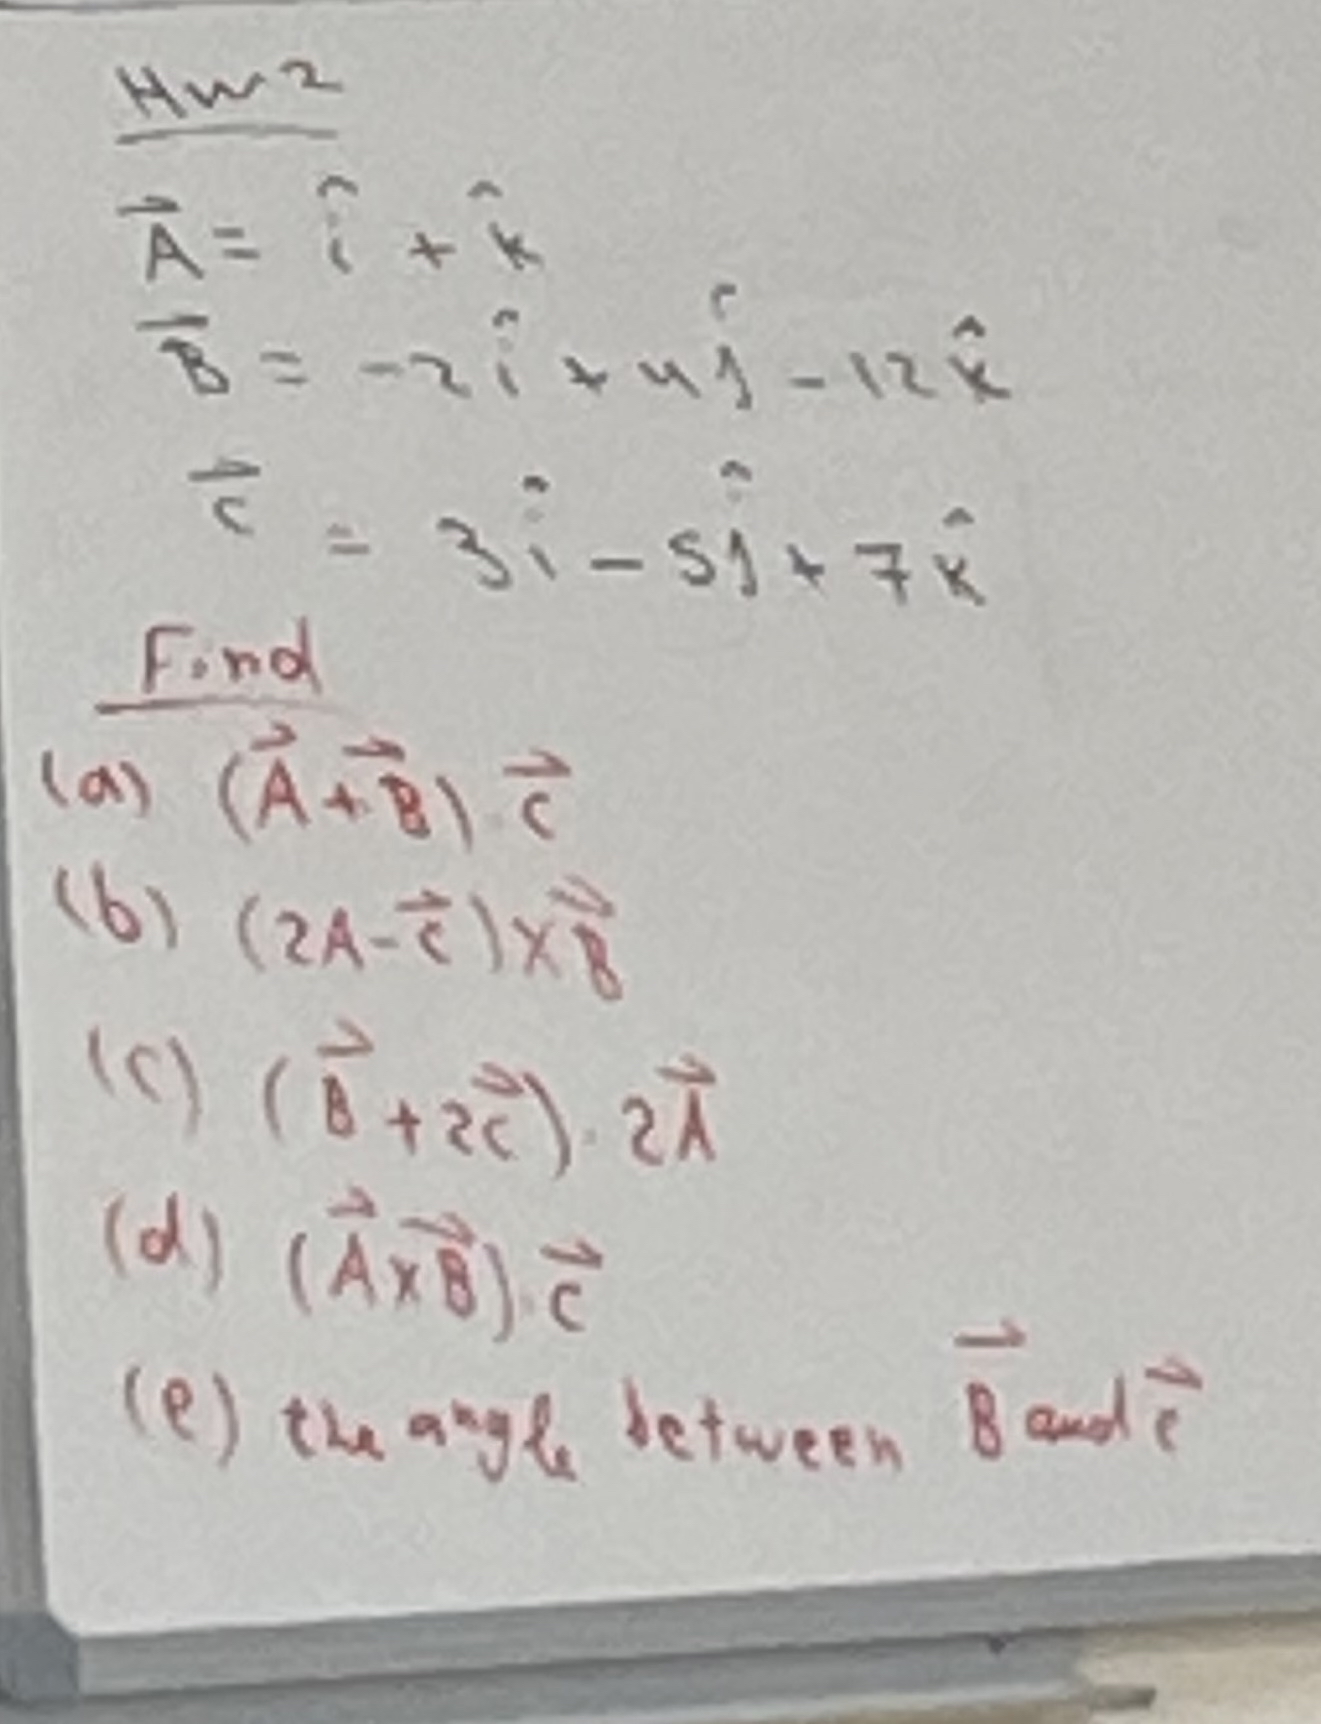 Hw 2
A⃗ = î + k̂
B⃗ = -2î + 4ĵ - 12k̂
C⃗ = 3î - 5ĵ + 7k̂
Find
(a) (A⃗ + B⃗) · C⃗
(b) (2A - C⃗) × B⃗
(c) (B⃗ + 2C⃗) · 2A⃗
(d) (A⃗ × B⃗) · C⃗
(e) the angle between B⃗ and C⃗